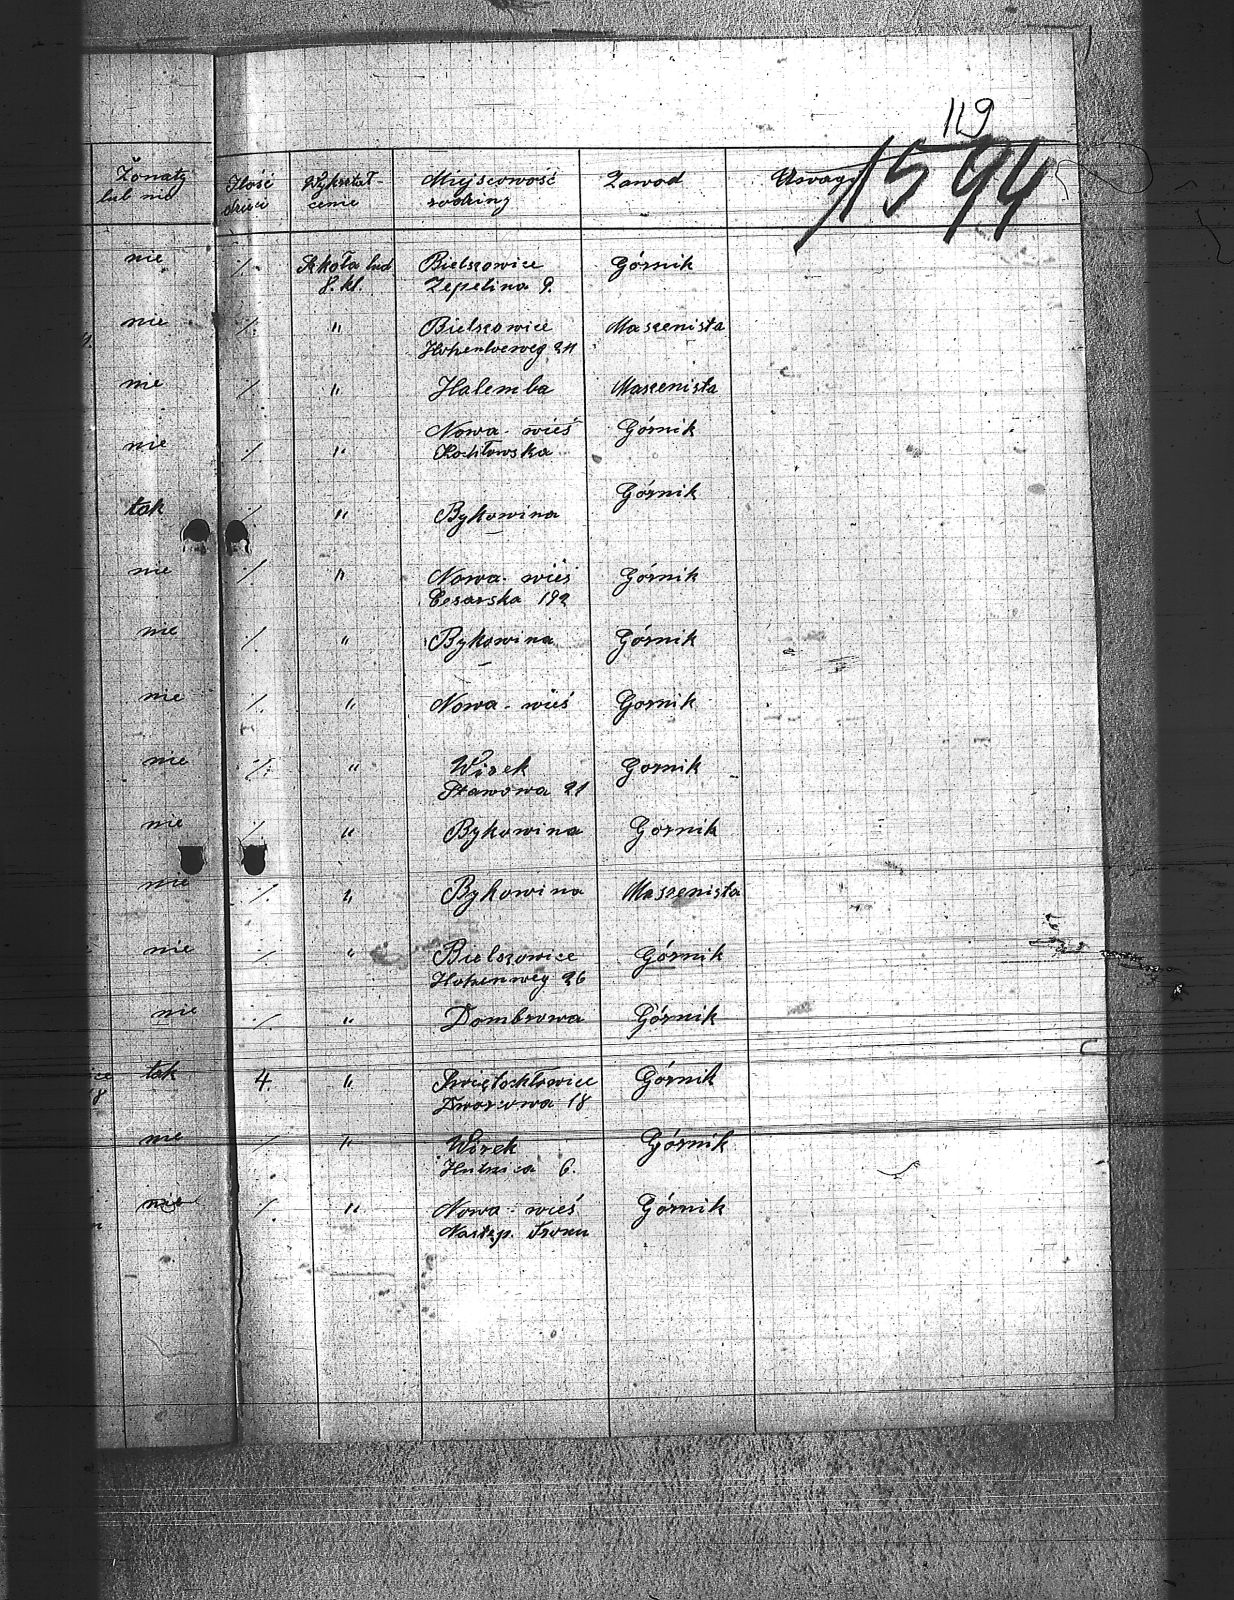 119
1594
Żonaty lub nie Ilość dzieci Wykształ-cenie Miejscowość rodziny Zawod Uwagi
nie / Szkoła lud 8. kl. Bielszowice Górnik
Zepelina 9.
nie / " Bielszowice Maszenista
24
nie / " Halemba Maszenista
nie / " Nowa-wieś Górnik
Kochłowska
tak / " Bykowina Górnik
nie / " Nowa-wieś Górnik
Cesarska 192
nie / " Bykowina Górnik
nie / " Nowa-wieś Gornik
nie / " Wirek Gornik
Stawowa 21
nie / " Bykowina Gornik
nie / " Bykowina Maszenista
nie / " Bielszowice Górnik
Hohenweg 26
nie / " Dombrowa Górnik
tak 4. " Świętochłowice Górnik
Dworcowa 18
nie / " Wirek Górnik
6.
nie / " Nowa-wieś Górnik
Następ. tronu